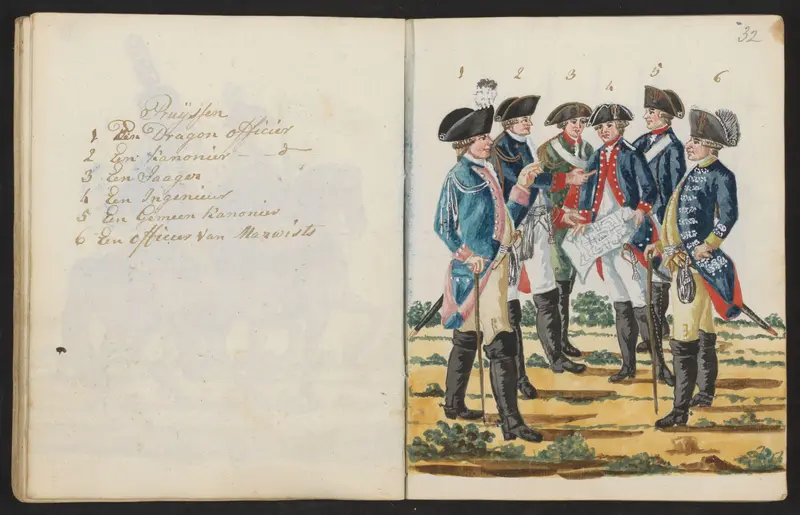 Pruÿssen
1 Een Dragon officier
2 Een Kanonier - - do
3 Een Jaager
4 Een Ingenieur
5 Een Gemeen Kanonier
6 Een officier van Marwists
32
1 2 3 4 5 6